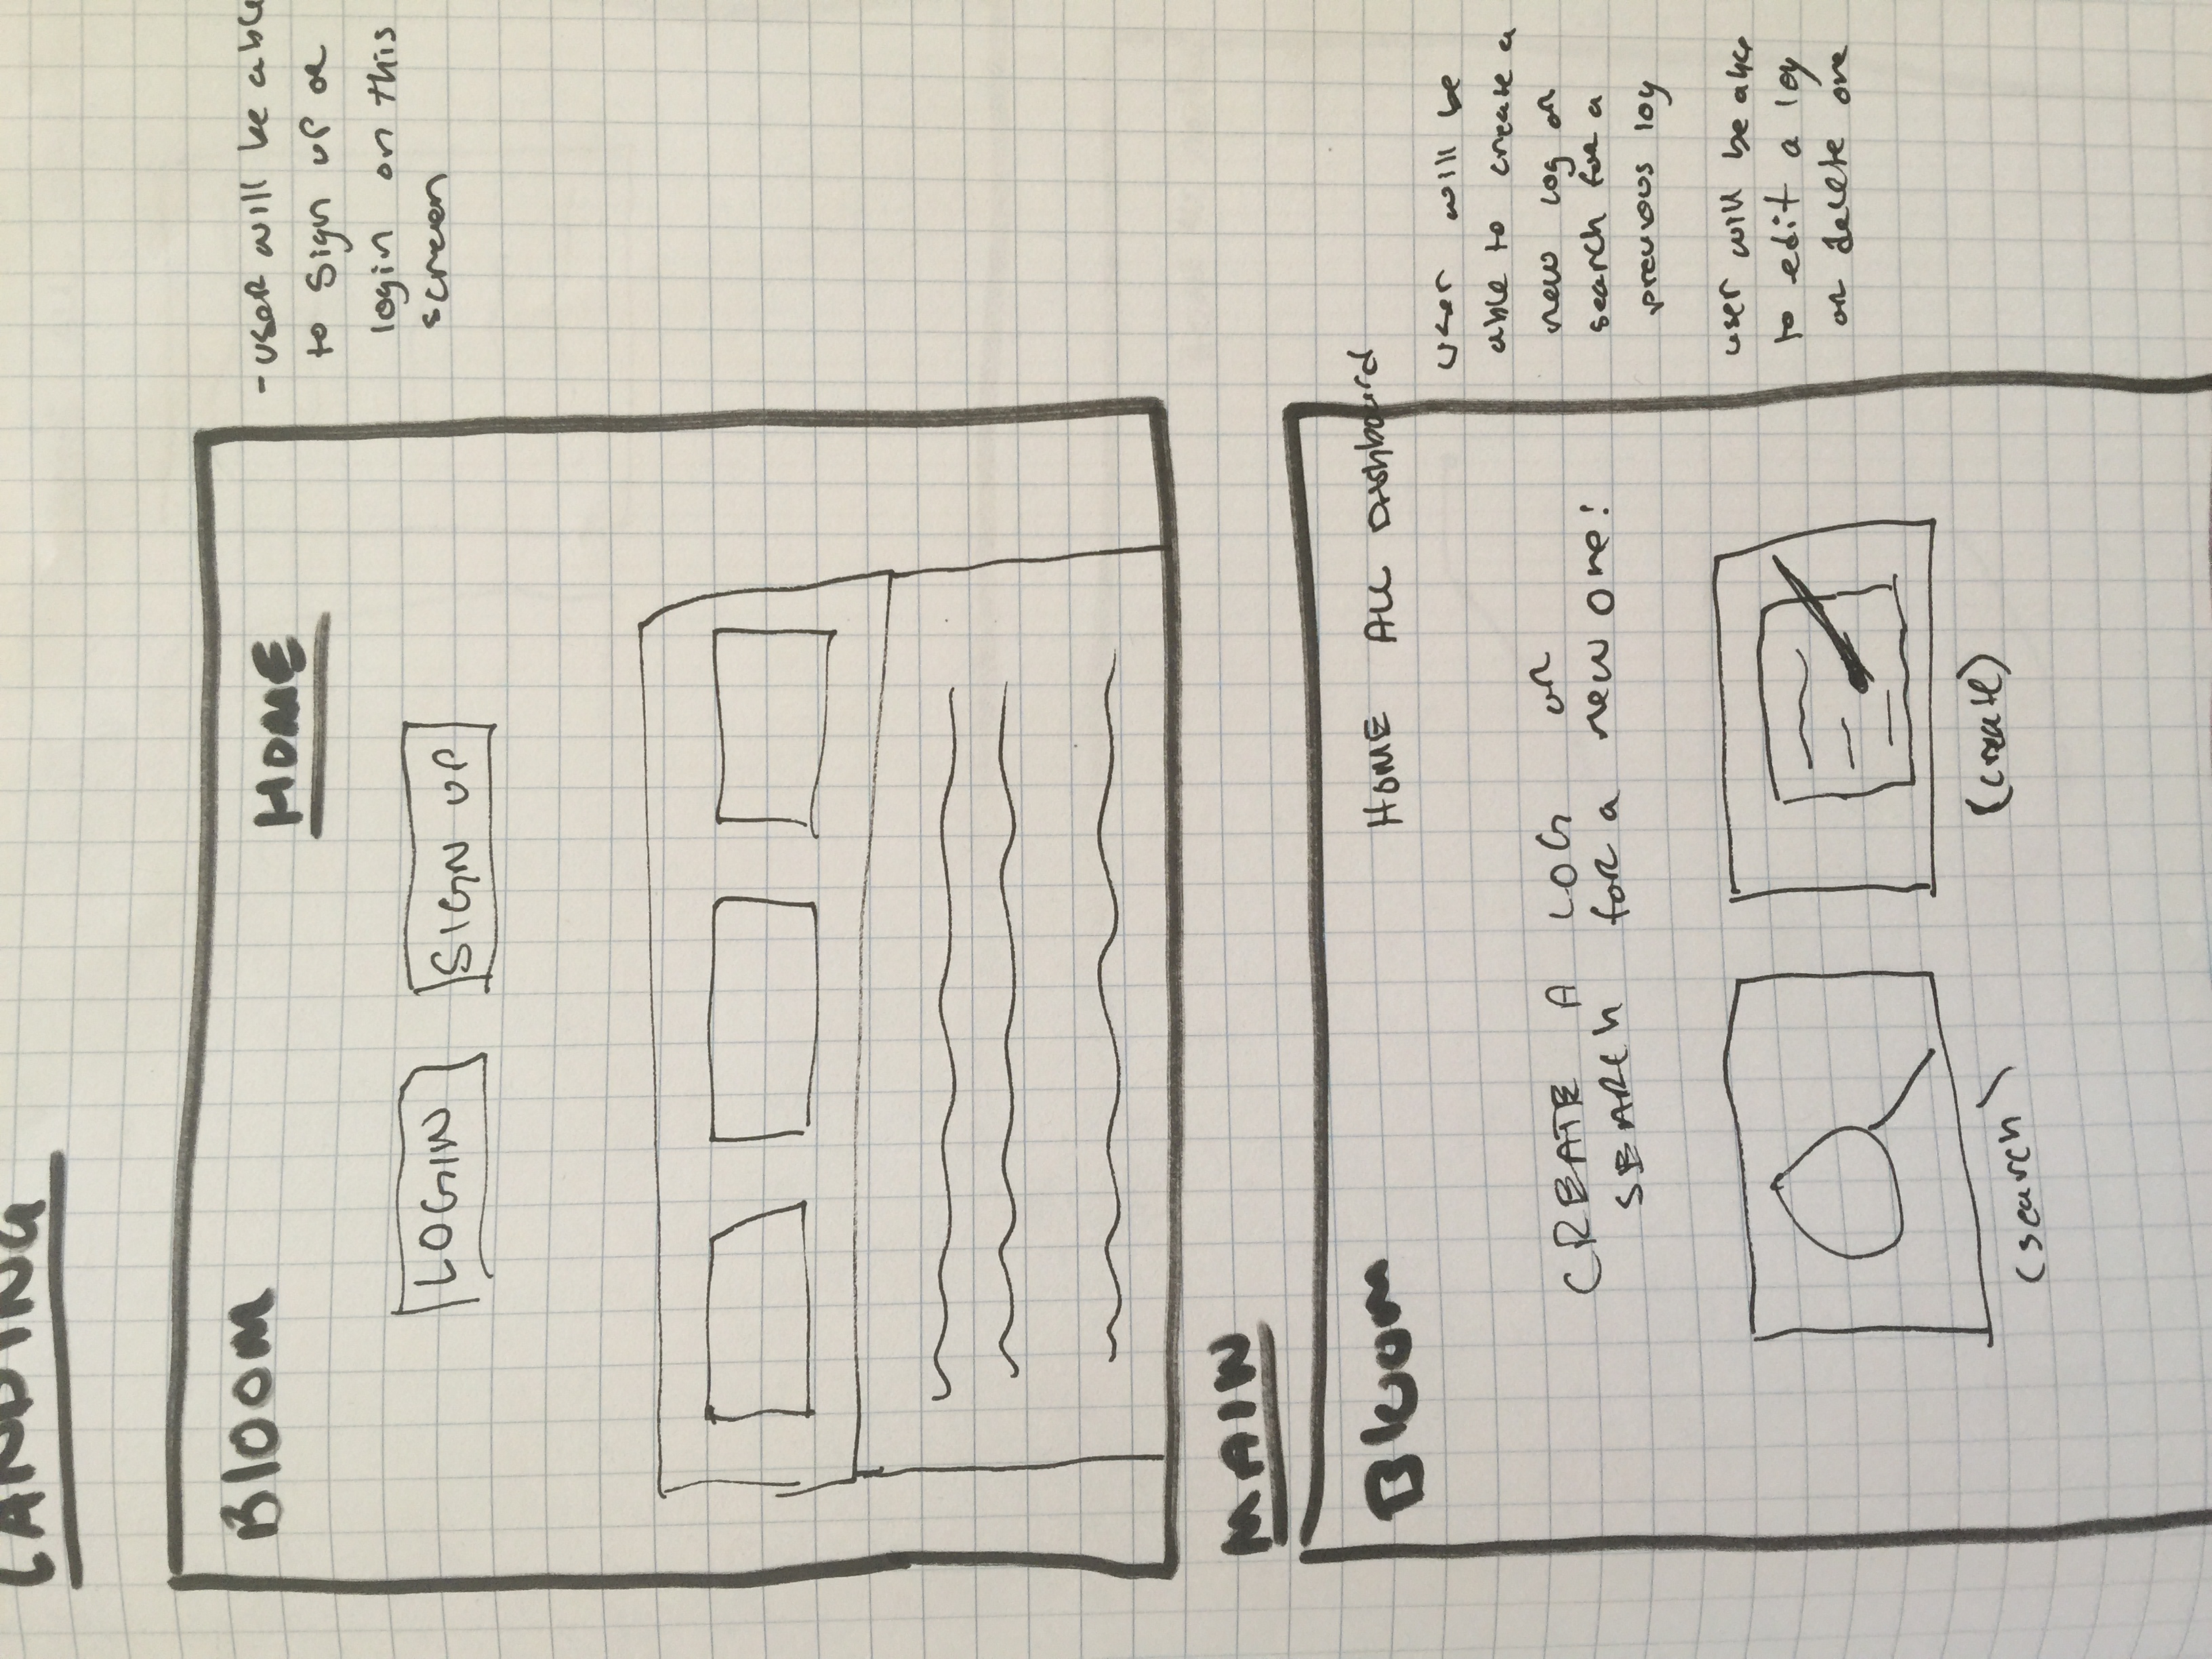 LANDING
Bloom
HOME
LOGIN
SIGN UP
- user will be able
to sign up or
login on this
screen
MAIN
Bloom
HOME ALL Dashboard
CREATE A LOG or
SEARCH for a new one!
(search)
(create)
user will be
able to create a
new log or
search for a
previous log
user will be able
to edit a log
or delete one